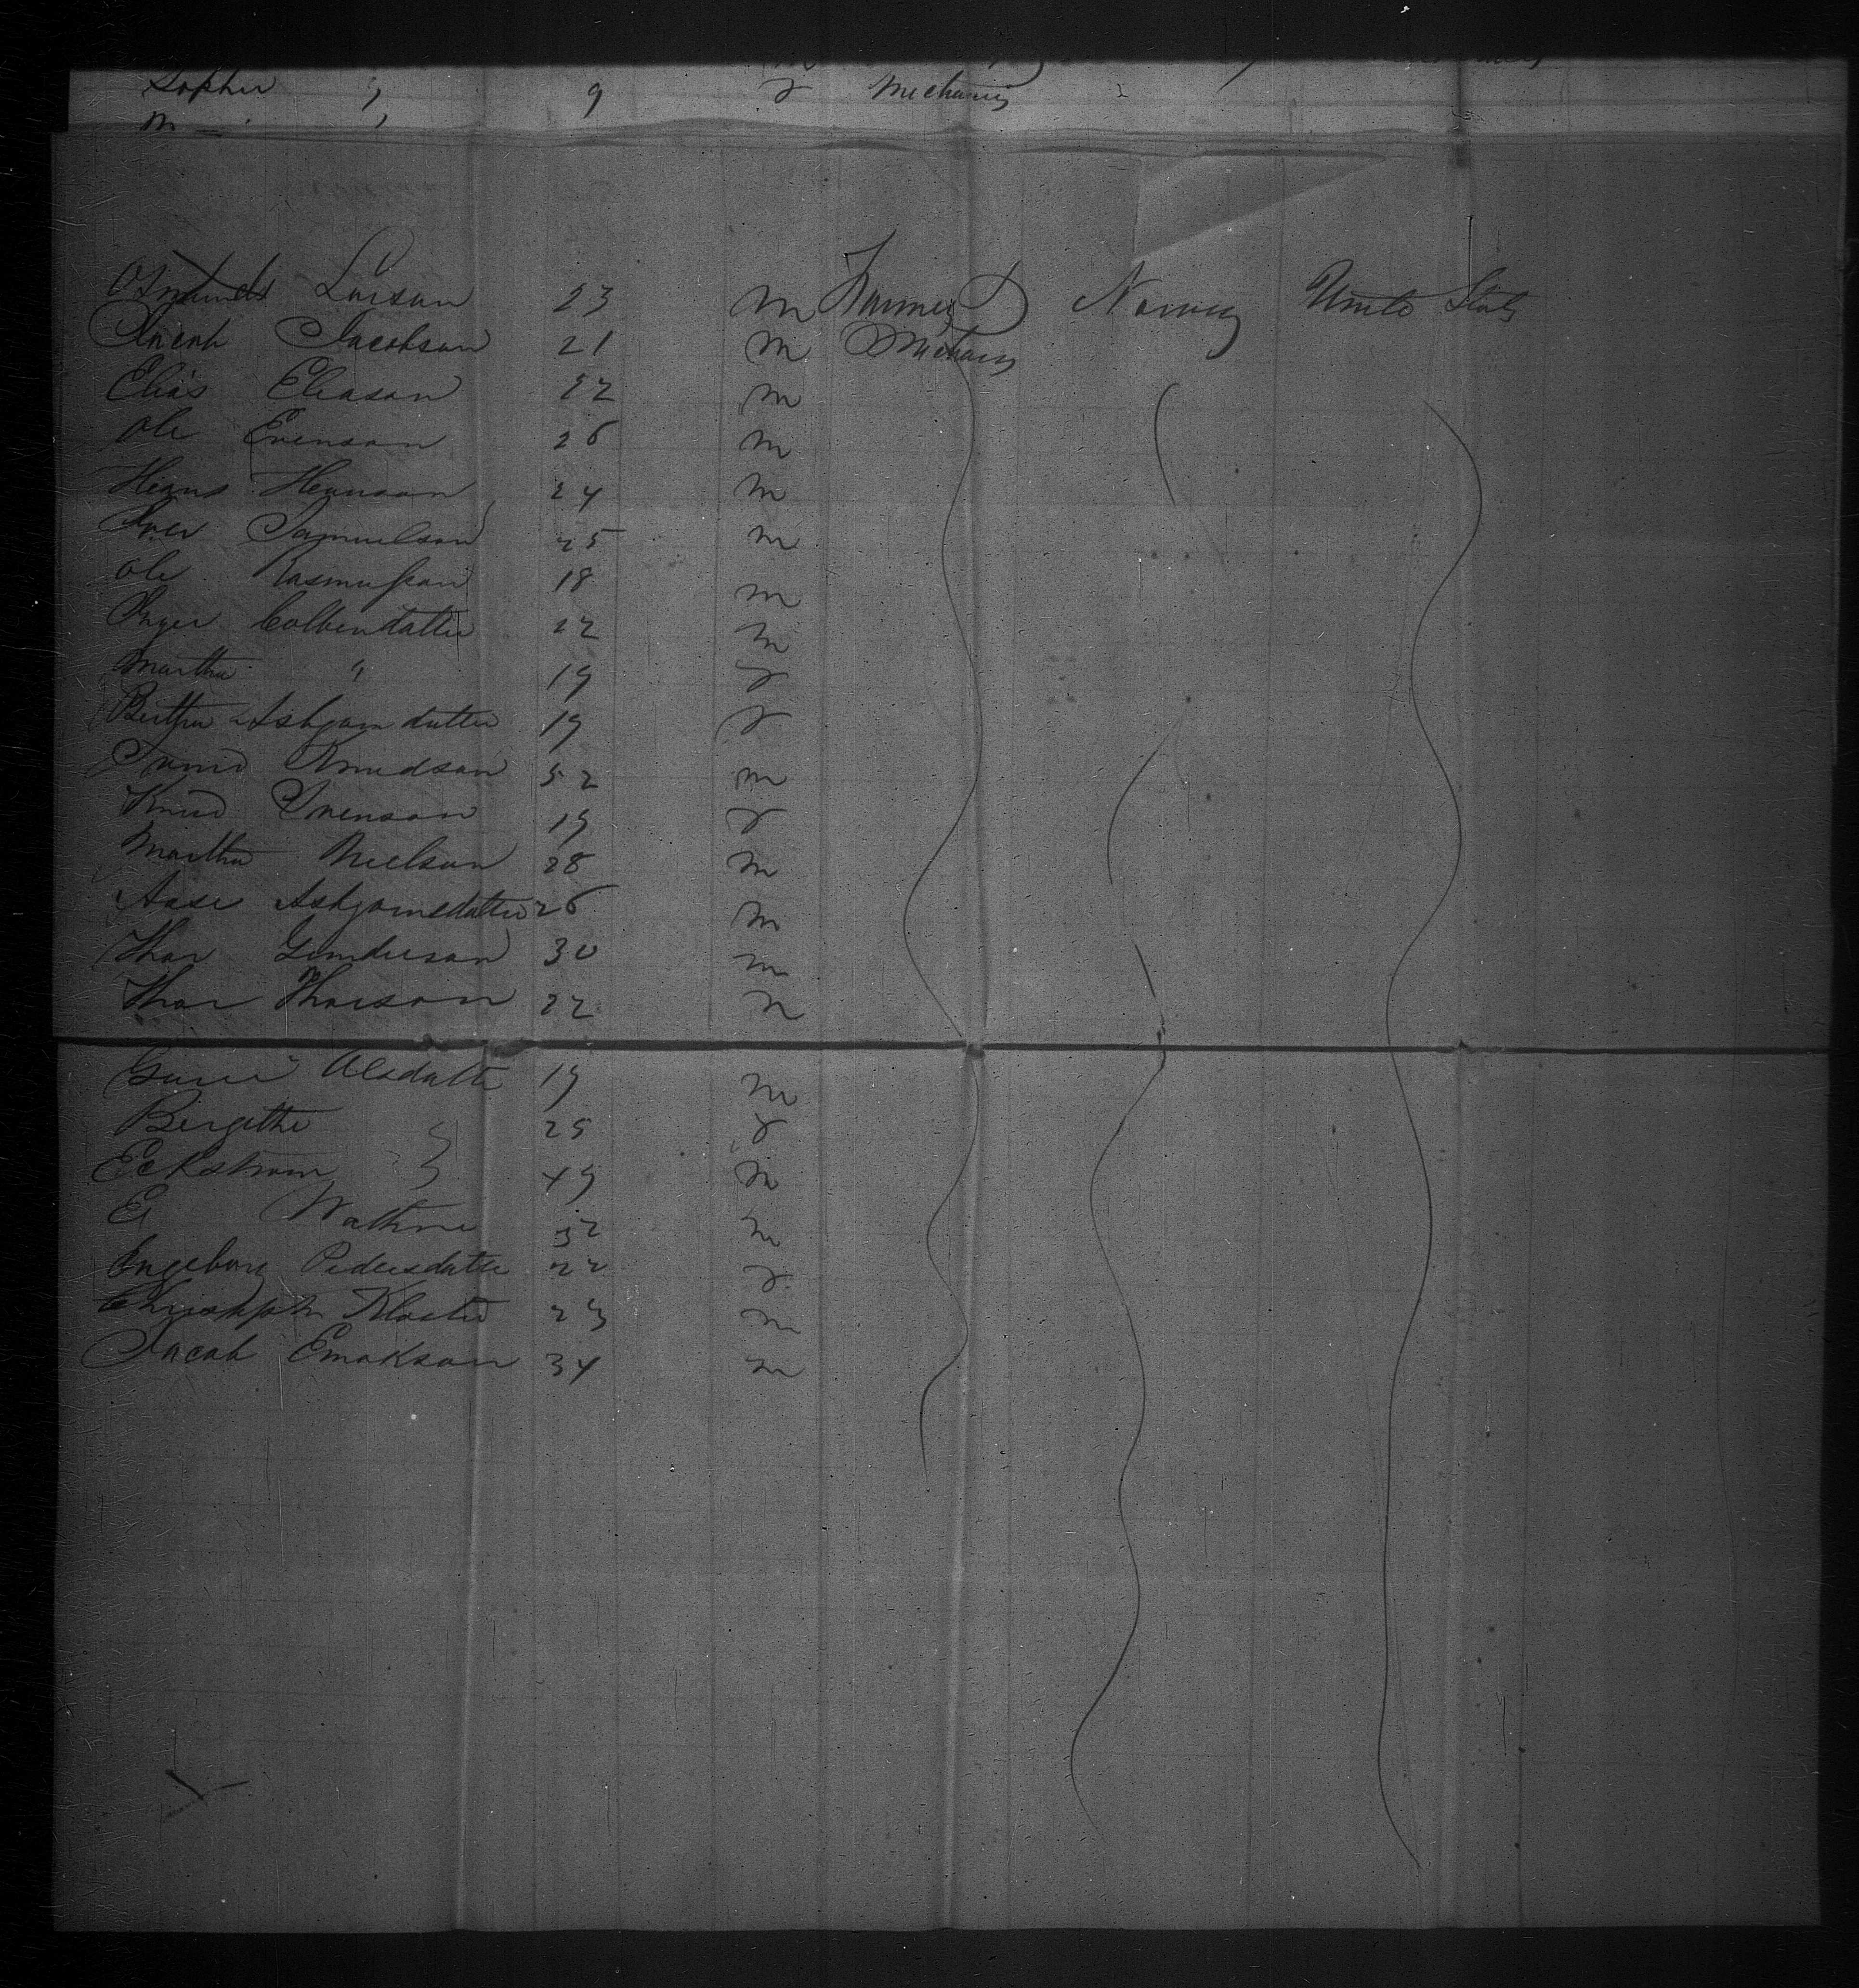 Sopher " 9 f Mechanic
M
Osmunds Larson 23 m Farmer Norway United States
Jacob Jacobson 21 m Mechanic
Elias Eleason 22 m
Ole Evenson 26 m
Heans Heanson 24 m
Iver Samuelson 25 m
Ole Rasmusson 18 m
Inger Colbendatter 22 m
Martha " 19 f
Bertha Asbjorndatter 19 f
Knudson 52 m
Knud Ivenson 19 f
Martha Nielson 28 m
Aase Asbjornsdatter 26 m
Thor Gunderson 30 m
Thor Thorson 22 m
Guri Olsdatte 19 m
Bergithe " 25 f
Eckstrom " 49 m
E Wathne 32 m
Ingeborg Pedersdatter 22 f
Christoph Kloster 23 m
Jacob Emokson 34 m